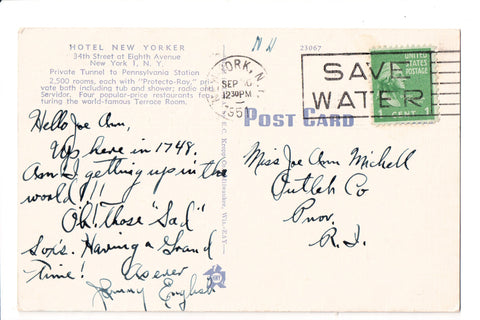 HOTEL NEW YORKER
34th Street at Eighth Avenue
New York 1, N. Y.
Private Tunnel to Pennsylvania Station
2,500 rooms, each with "Protecto-Ray," pri-
vate bath including tub and shower; radio and
Servidor. Four popular restaurants fea-
turing the world-famous Terrace Room.
23067
NEW YORK, N.Y.
SEP
12 30 PM
SAVE
WATER
UNITED
STATES
POSTAGE
1 CENT
POST CARD
Hello Joe Ann,
Up here in 1748.
Am I getting up in the
world!!!
Oh! Those "Sad"
Sox's. Having a Grand
time!
As ever
Jonny English
Miss Joe Ann Michell
Outlet Co
Prov.
R. I.